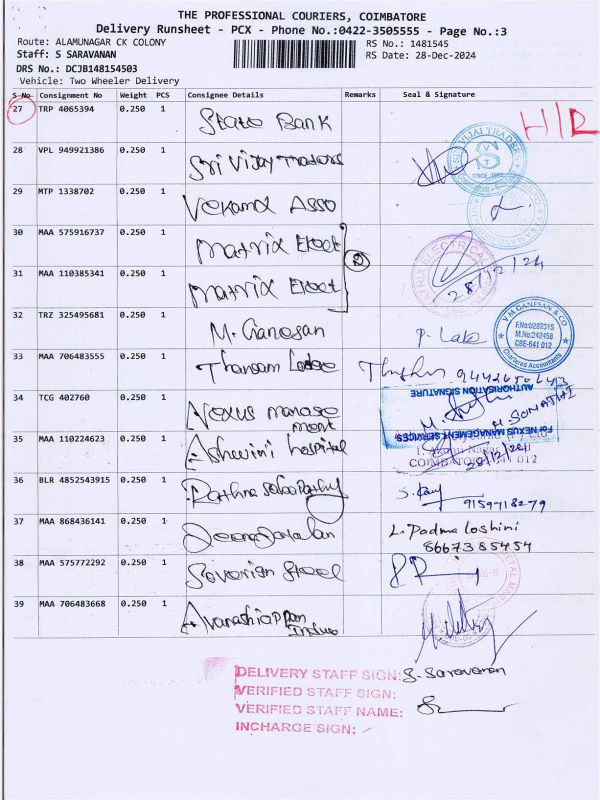 THE PROFESSIONAL COURIERS, COIMBATORE
Delivery Runsheet - PCX - Phone No.:0422-3505555 - Page No.:3
Route: ALAMUNAGAR CK COLONY
RS No.: 1481545
Staff: S SARAVANAN
RS Date: 28-Dec-2024
DRS No.: DCJB148154503
Vehicle: Two Wheeler Delivery
S No Consignment No Weight PCS Consignee Details Remarks Seal & Signature
27 TRP 4065394 0.250 1 State Bank
28 VPL 949921386 0.250 1 Sri Vijay Traders
29 MTP 1338702 0.250 1 Asso
30 MAA 575916737 0.250 1 Matrix Elect
28/12/24
31 MAA 110385341 0.250 1 Matrix Elect
2
32 TRZ 325495681 0.250 1 M. Ganesan
V M GANESAN & CO
F.No:028231S
M.No:242458
CBE-641 012
Chartered Accountants
33 MAA 706483555 0.250 1
34 TCG 402760 0.250 1 Nexus manage
ment
AUTHORISATION SIGNATURE
For NEXUS MANAGEMENT SERVICES
35 MAA 110224623 0.250 1 Ashwini hospital
COIMBATORE
28/12/24
36 BLR 4852543915 0.250 1
9159718279
37 MAA 868436141 0.250 1
L. Padma loshini
8667385454
38 MAA 575772292 0.250 1 Soverign Steel
39 MAA 706483668 0.250 1 Avanashiappan
DELIVERY STAFF SIGN: S. Saravanan
VERIFIED STAFF SIGN:
VERIFIED STAFF NAME:
INCHARGE SIGN: